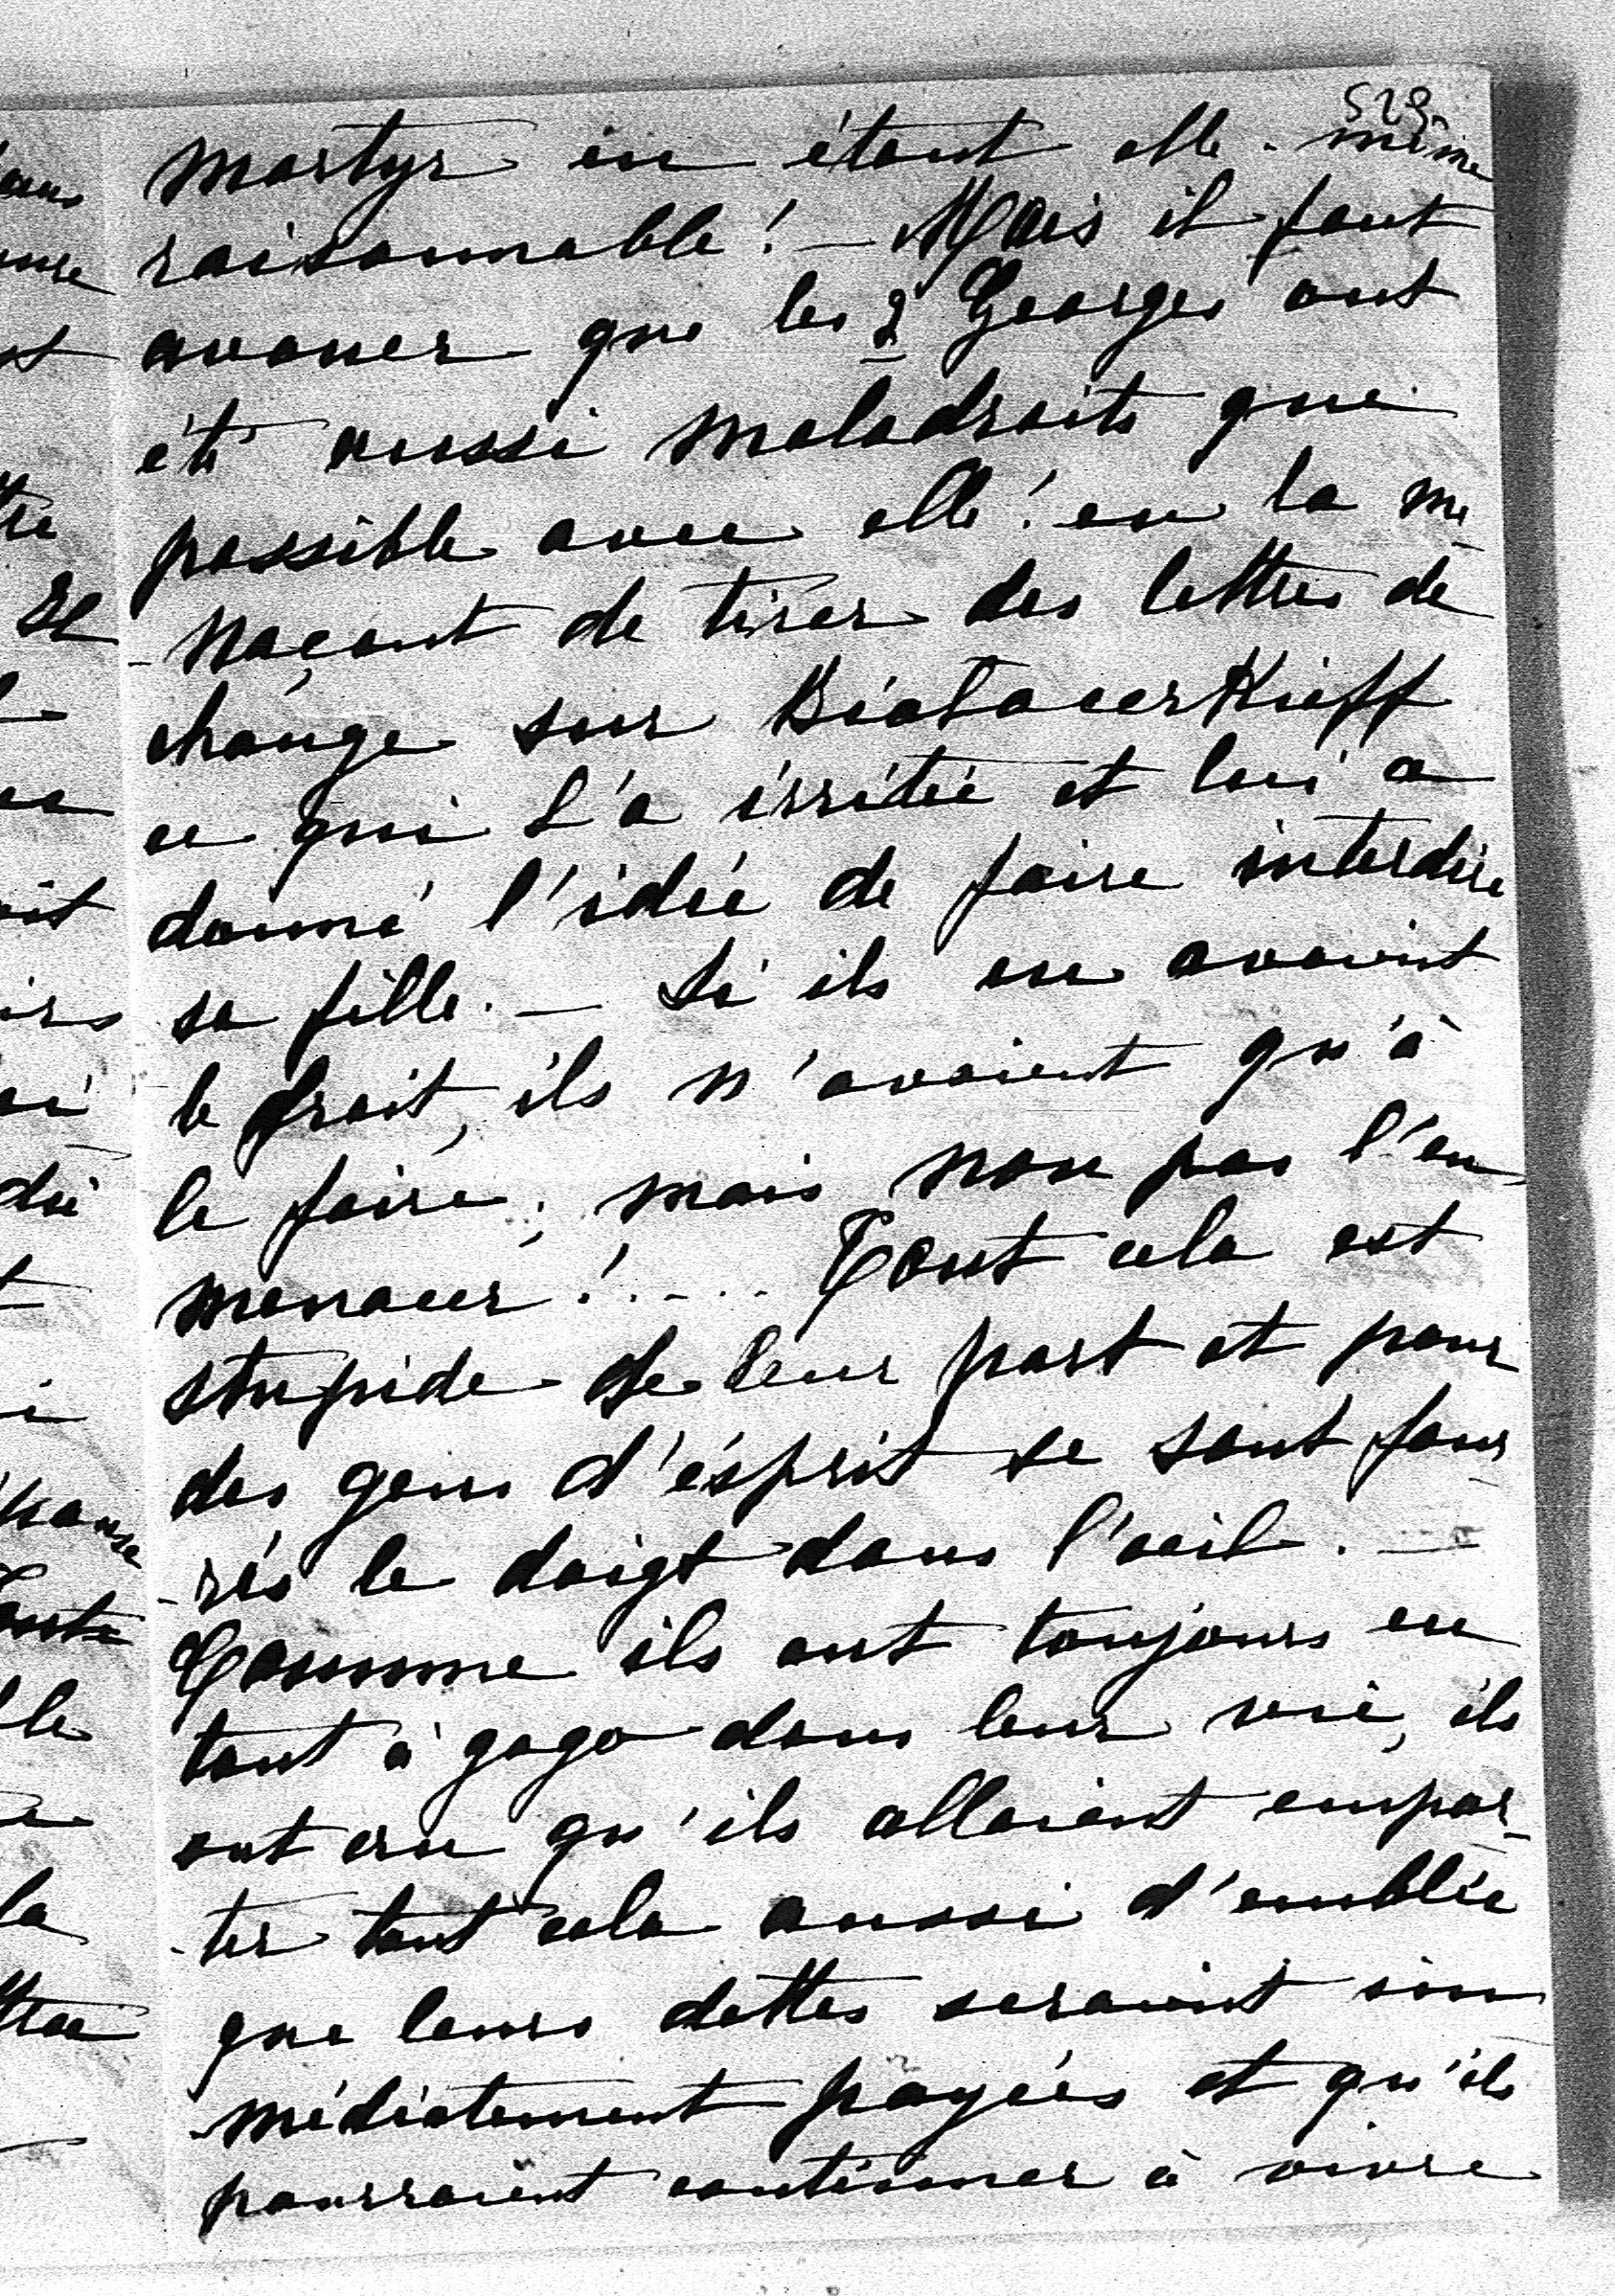 529
martyr en étant elle-même
raisonnable! — Mais il faut
avouer que les 2 Georges ont
été aussi maladroits que
possible avec elle! en la me-
-naçant de tirer des lettres de
change sur Biatacerkieff
ce qui l'a irritée et lui a
donné l'idée de faire interdire
sa fille. — Si ils en avaient
le droit, ils n'avaient qu'à
le faire; mais non pas l'en
menacer!..... Tout cela est
stupide de leur part et pour
des gens d'ésprit se sont four-
-rés le doigt dans l'oeil. —
Comme ils ont toujours eu
tout à gogo dans leur vie, ils
ont cru qu'ils allaient empor-
-ter tout cela aussi d'emblée
que leurs dettes seraient im
-médiatement payées et qu'ils
pourraient continuer à vivre